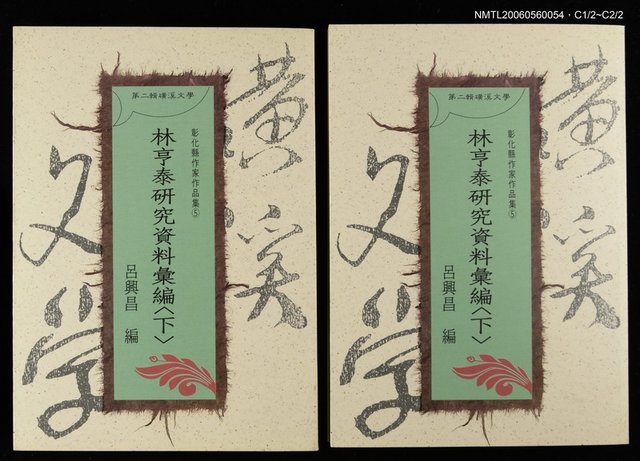 NMTL20060560054．C1/2~C2/2
第二輯磺溪文學
彰化縣作家作品集⑤
林亨泰研究資料彙編〈下〉
呂興昌 編
黄溪
文学
第二輯磺溪文學
彰化縣作家作品集⑤
林亨泰研究資料彙編〈下〉
呂興昌 編
黄溪
文学